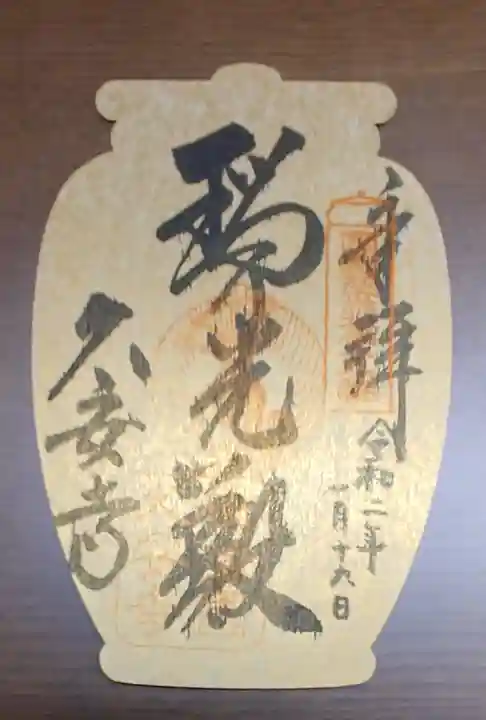 奉拝
令和二年
一月十九日
瑞光殿
久安寺